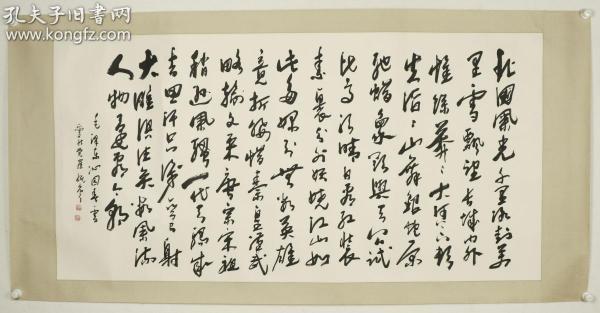 孔夫子旧书网
www.kongfz.com
北国风光千里冰封万
里雪飘望长城内外
惟余莽莽大河上下顿
失滔滔山舞银蛇原
驰蜡象欲与天公试
比高须晴日看红装
素裹分外妖娆江山如
此多娇引无数英雄
竞折腰惜秦皇汉武
略输文采唐宗宋祖
稍逊风骚一代天骄成
吉思汗只识弯弓射
大雕俱往矣数风流
人物还看今朝
毛泽东沁园春雪